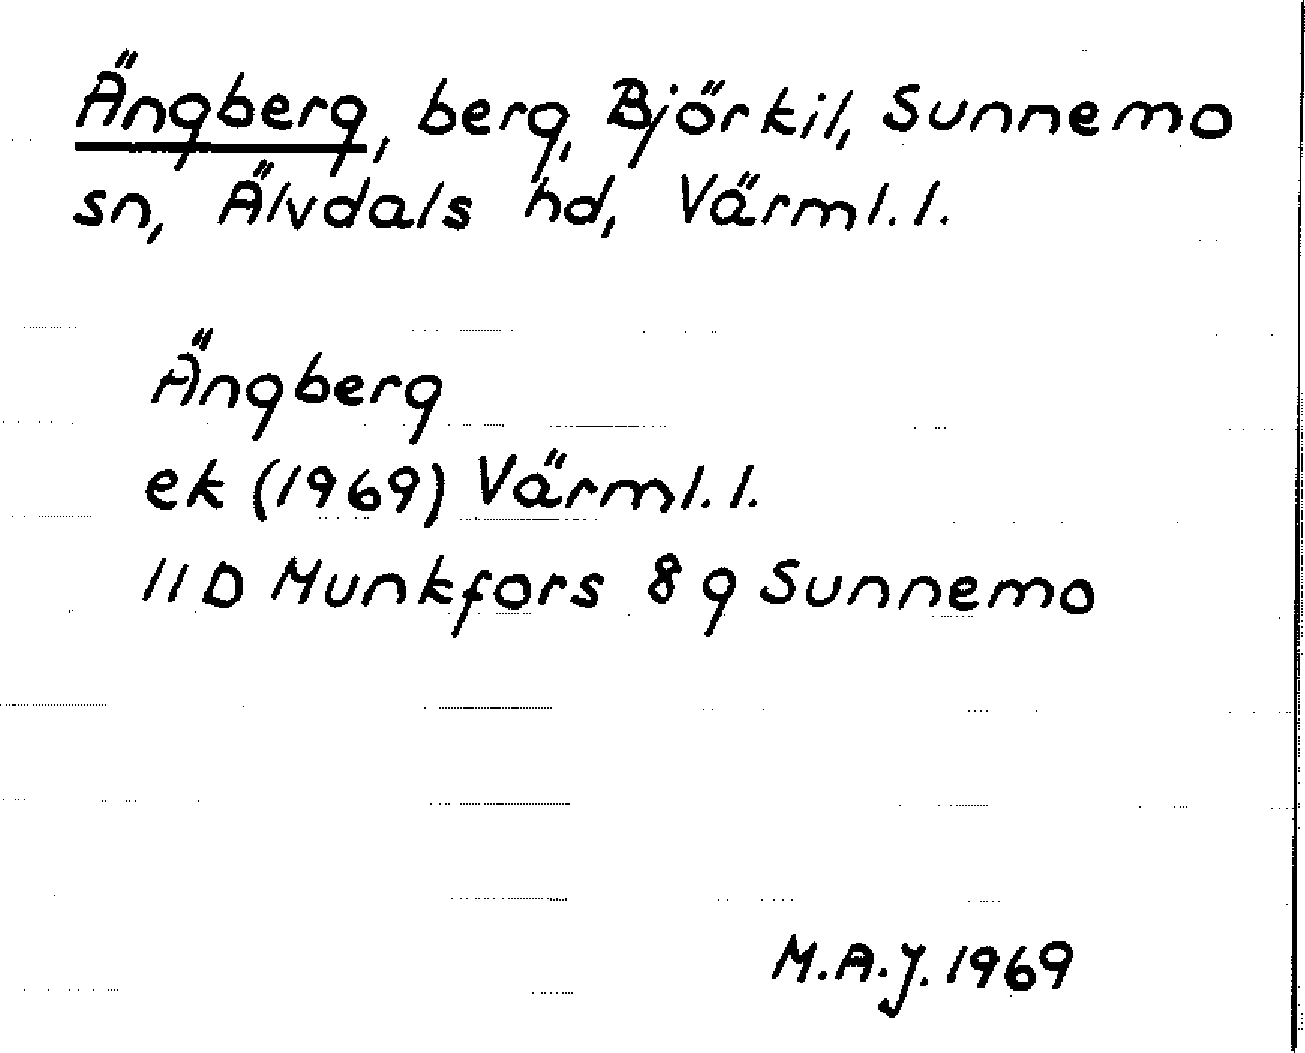 Ängberg, berg, Björkil, Sunnemo
sn, Älvdals hd, Värml. l.
Ängberg
ek (1969) Värml. l.
11 D Munkfors 8 g Sunnemo
M.A.J. 1969